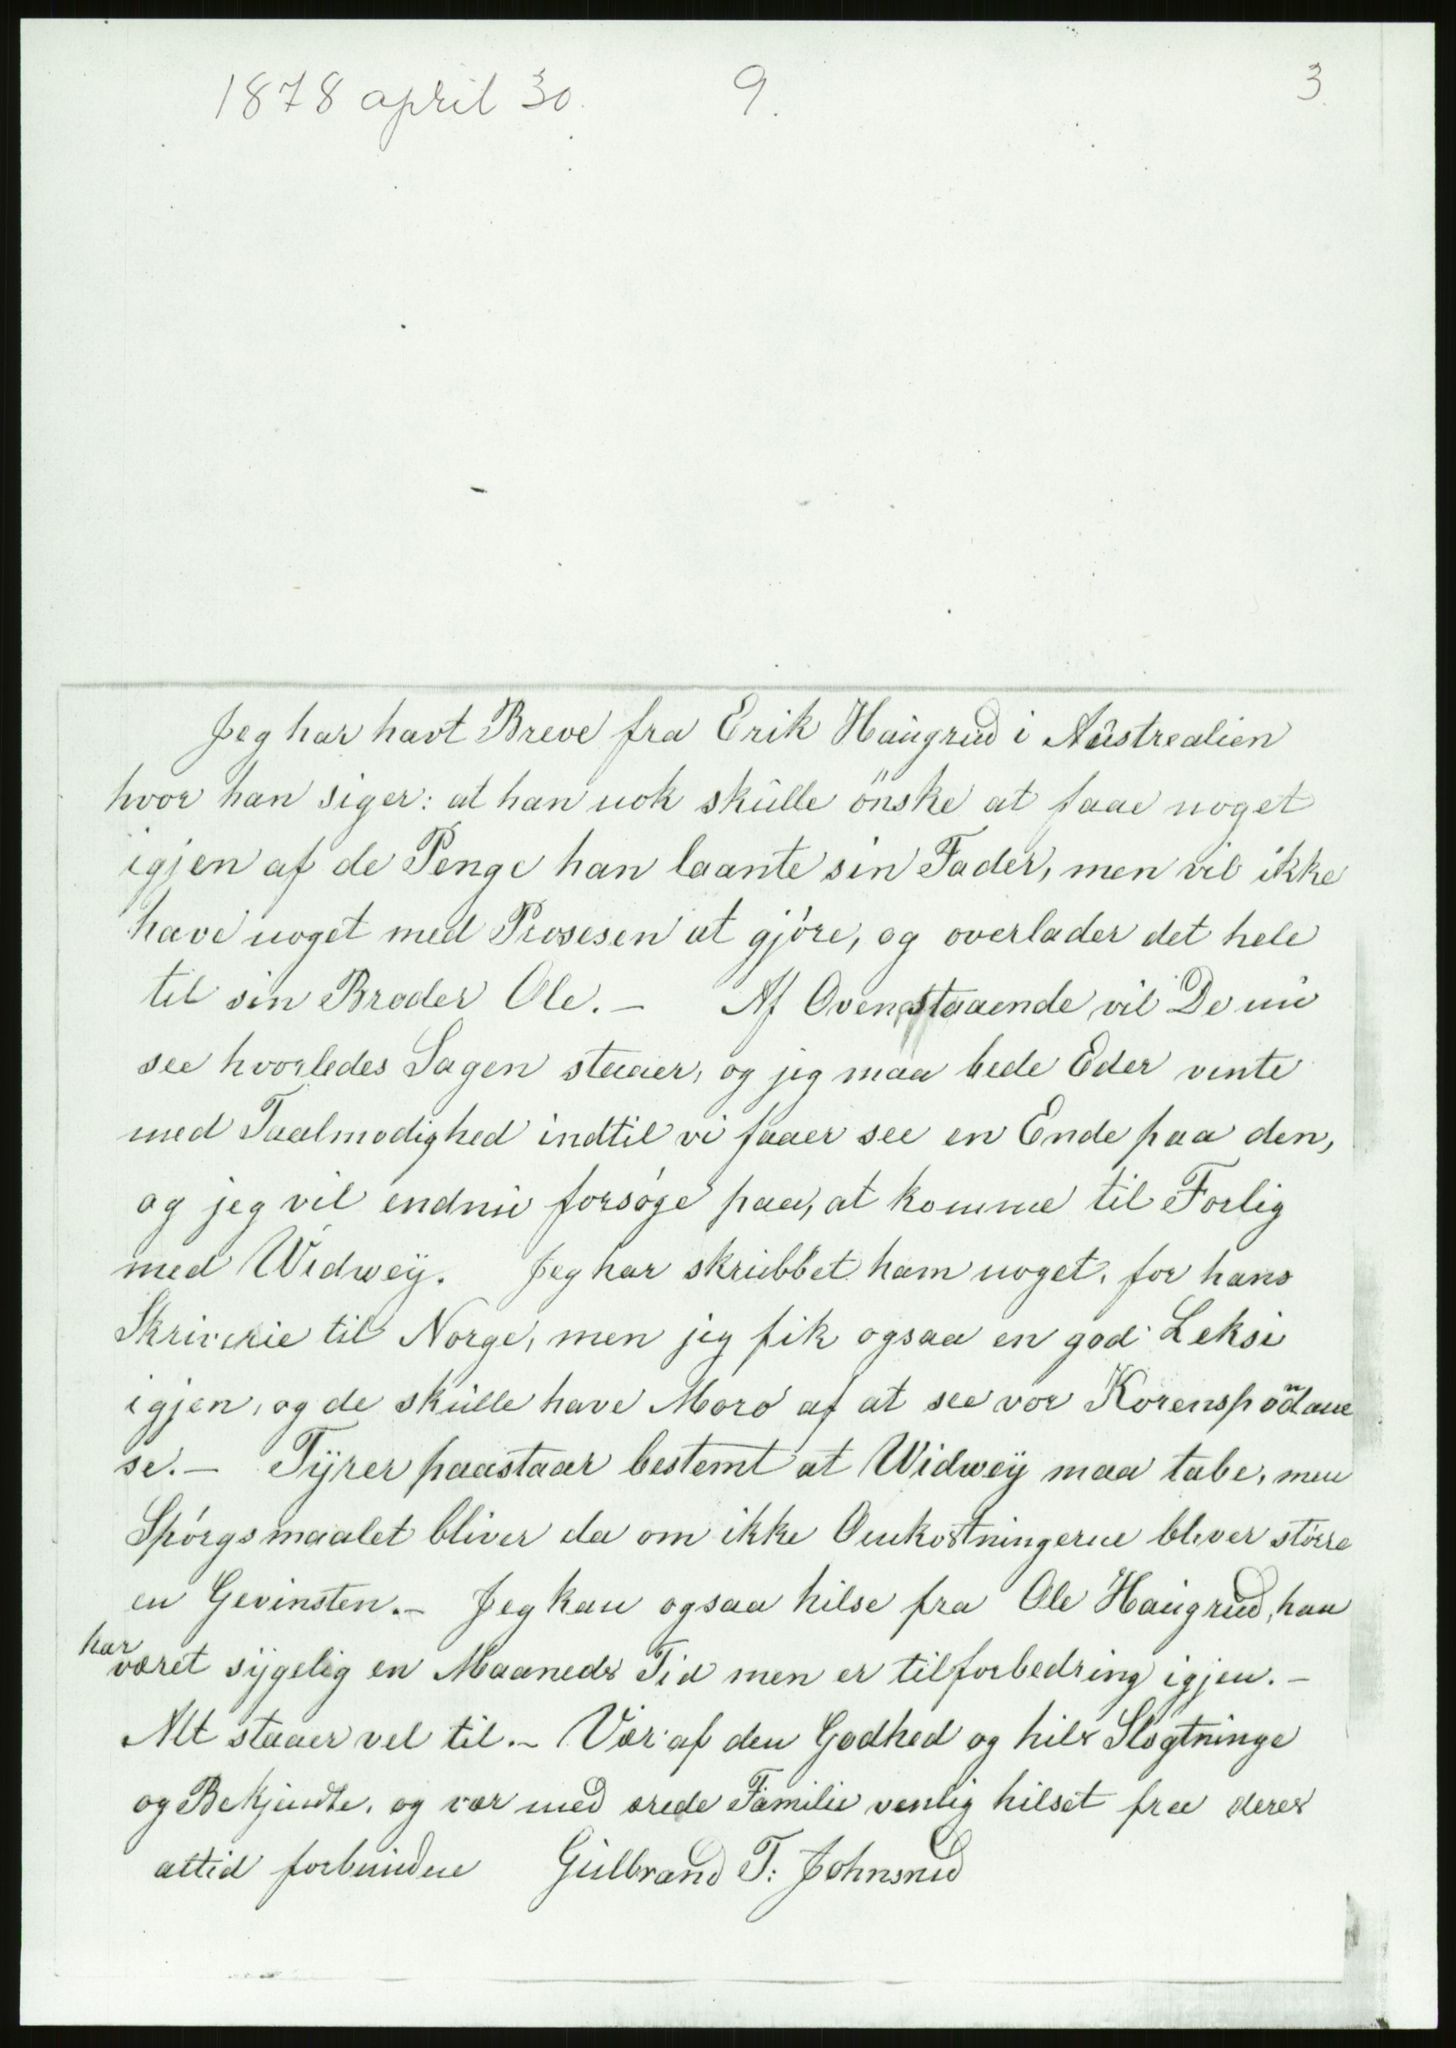 1878 april 30. 9. 3.
Jeg har havt Breve fra Erik Haugrud i Austrealien
hvor han siger: at han nok skulle önske at faae noget
igjen af de Penge han laante sin Fader, men vil ikke
have noget med Prosesen at gjóre, og overlader det hele
til sin Broder Ole. – Af Ovenstaaende vil De nu
see hvorledes Sagen staaer, og jeg maa bede Eder vente
med Taalmodighed indtil vi faaer see en Ende paa den,
og jeg vil endnu forsóge paa, at komme til Forlig
med Widweÿ. Jeg har skrubbet ham noget, for hans
Skriverie til Norge, men jeg fik ogsaa en god Leksi
igjen, og de skulle have Moro af at see vor Korenspondane
se. – Tÿrer paastaar bestemt at Widweÿ maa tabe, men
Spórgsmaalet bliver da om ikke Omkostningerne bliver stórre
en Gevinsten. – Jeg kan ogsaa hilse fra Ole Haugrud, han
har været sÿgelig en Maaneds Tid men er tilforbedring igjen. –
Alt staaer vel til. – Vær af den Godhed og hils Slægtninge
og Bekjendte, og vær med ærede Familie venlig hilset fra deres
altid forbundne Gulbrand T: Johnsrud